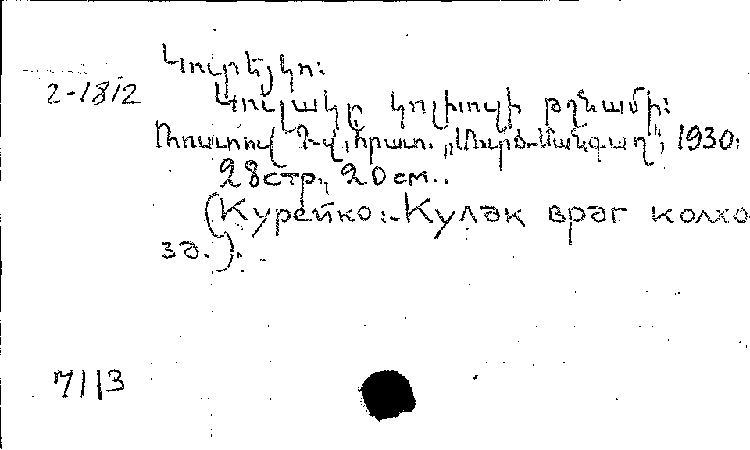 Կուրեյկո։
2-1812
Կուլակը կոլխոզի թշնամի։
Ռոստով Դ-վ, հրատ. „Մուրճ-Մանգաղ", 1930։
28стр., 20см..
(Курейко.-Кулак враг колхо
за.).
7113